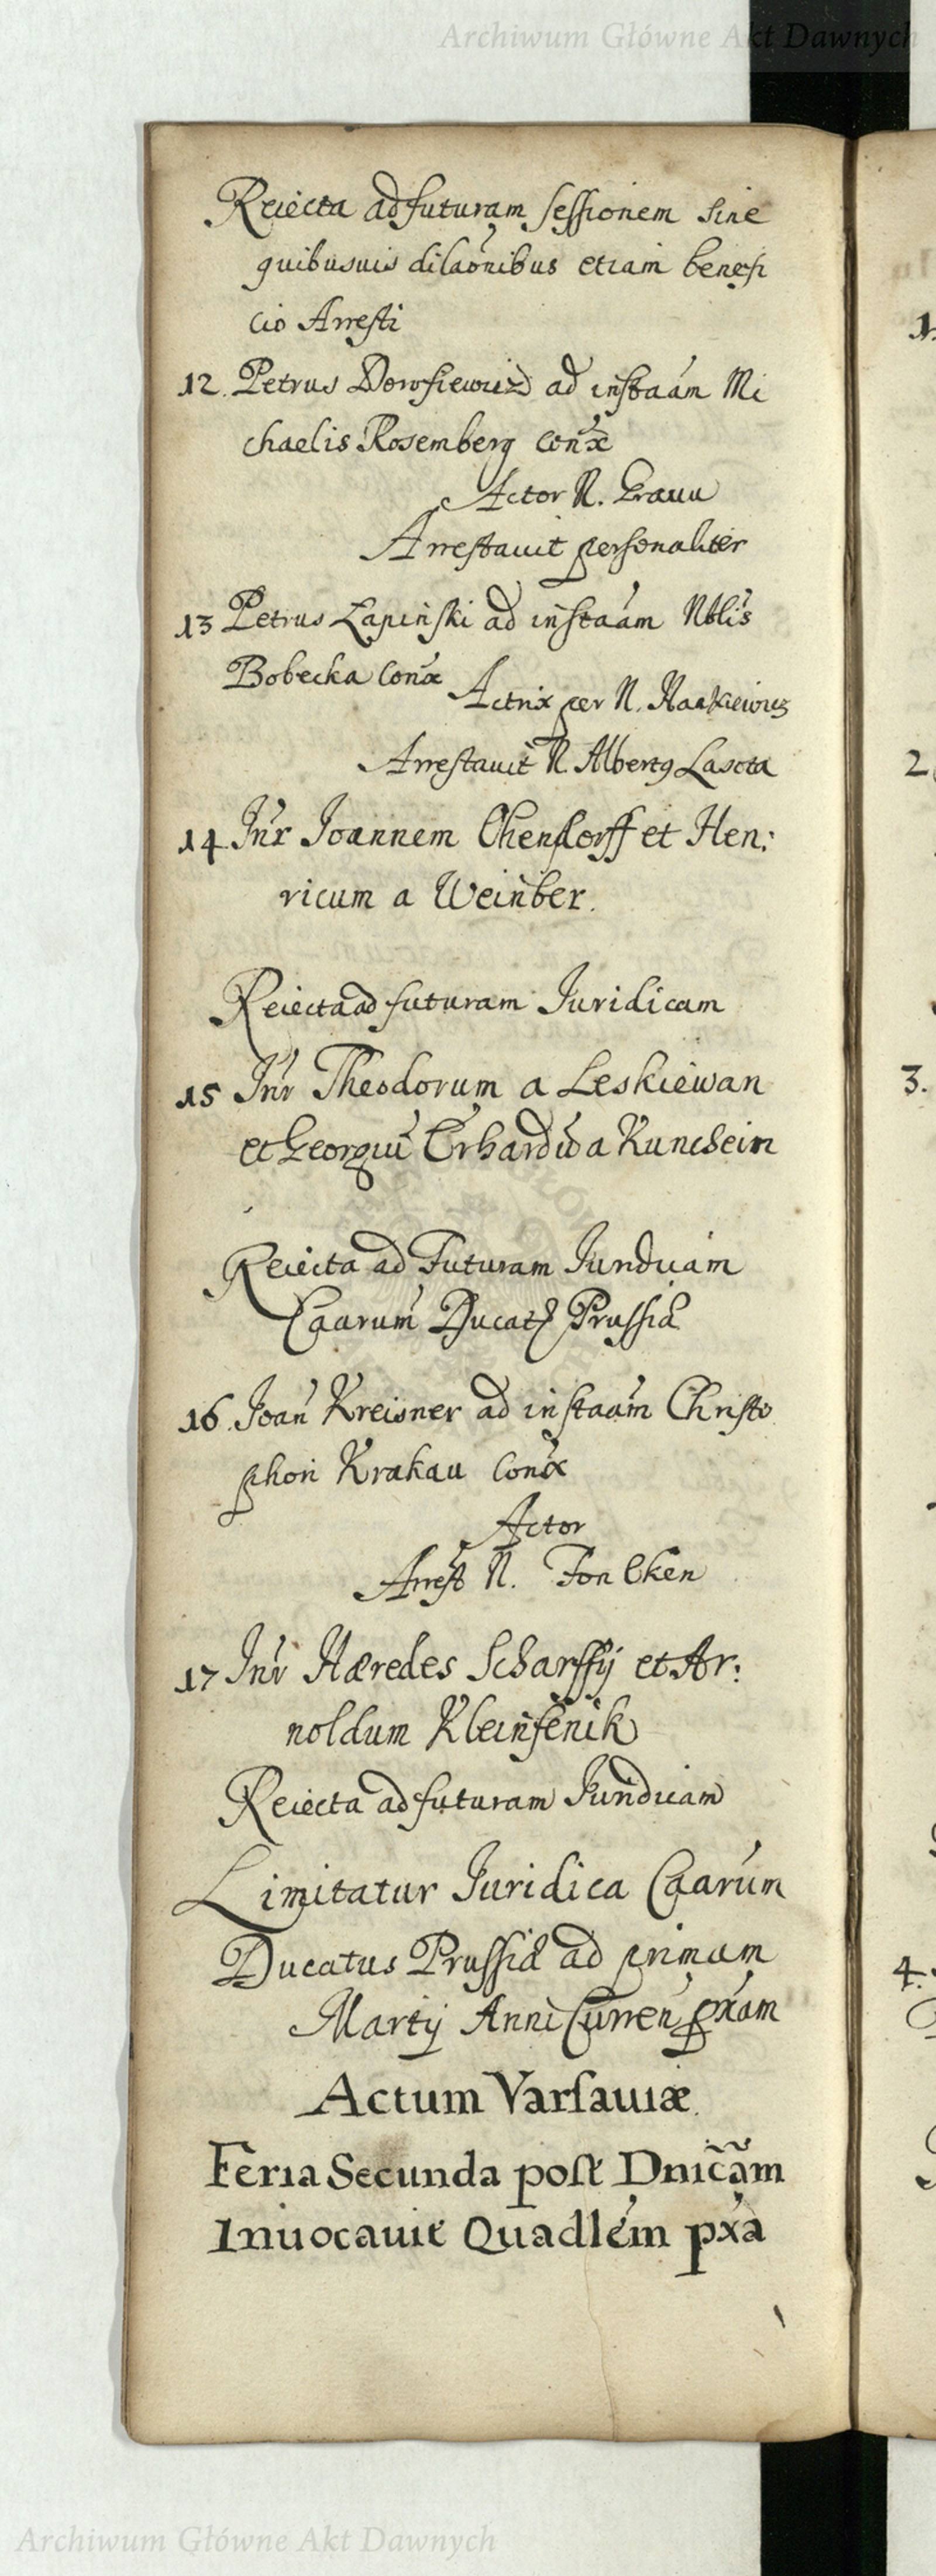 Archiwum Główne Akt Dawnych
Reiecta ad futuram sessionem sine
quibusuis dilaonibus etiam benefi
cio Arresti
12. Petrus Dowsiewicz ad instaam Mi
chaelis Rosemberg Conx
Actor N. Grauu
Arrestauit personaliter
13 Petrus Lapinski ad instaam Nblis
Bobecka Conx
Actrix per N.
Arrestauit N. Albertg Lascta
14 Inr Joannem Ohendorff et Hen:
ricum a Weinber.
Reiecta ad futuram Juridicam
15 Inr Theodorum a Leskiewan
et Georgiu Erhardu a Kuncheim
Reiecta ad Futuram Juridicam
Caarum Ducatg Prussiæ
16. Joan Kreisner ad instaam Christo
phori Krakau Conx
Actor
Arrest N. Fon Eken
17 Inr Hæredes Scharffij et Ar:
noldum Kleinfenik
Reiecta ad futuram Juridicam
Limitatur Juridica Caarum
Ducatus Prussiæ ad primam
Martij Anni Curren pxam
Actum Varsauiæ.
Feria Secunda post Dnicam
Inuocauit Quadlem pxa
1.
2
3.
4.
Archiwum Główne Akt Dawnych